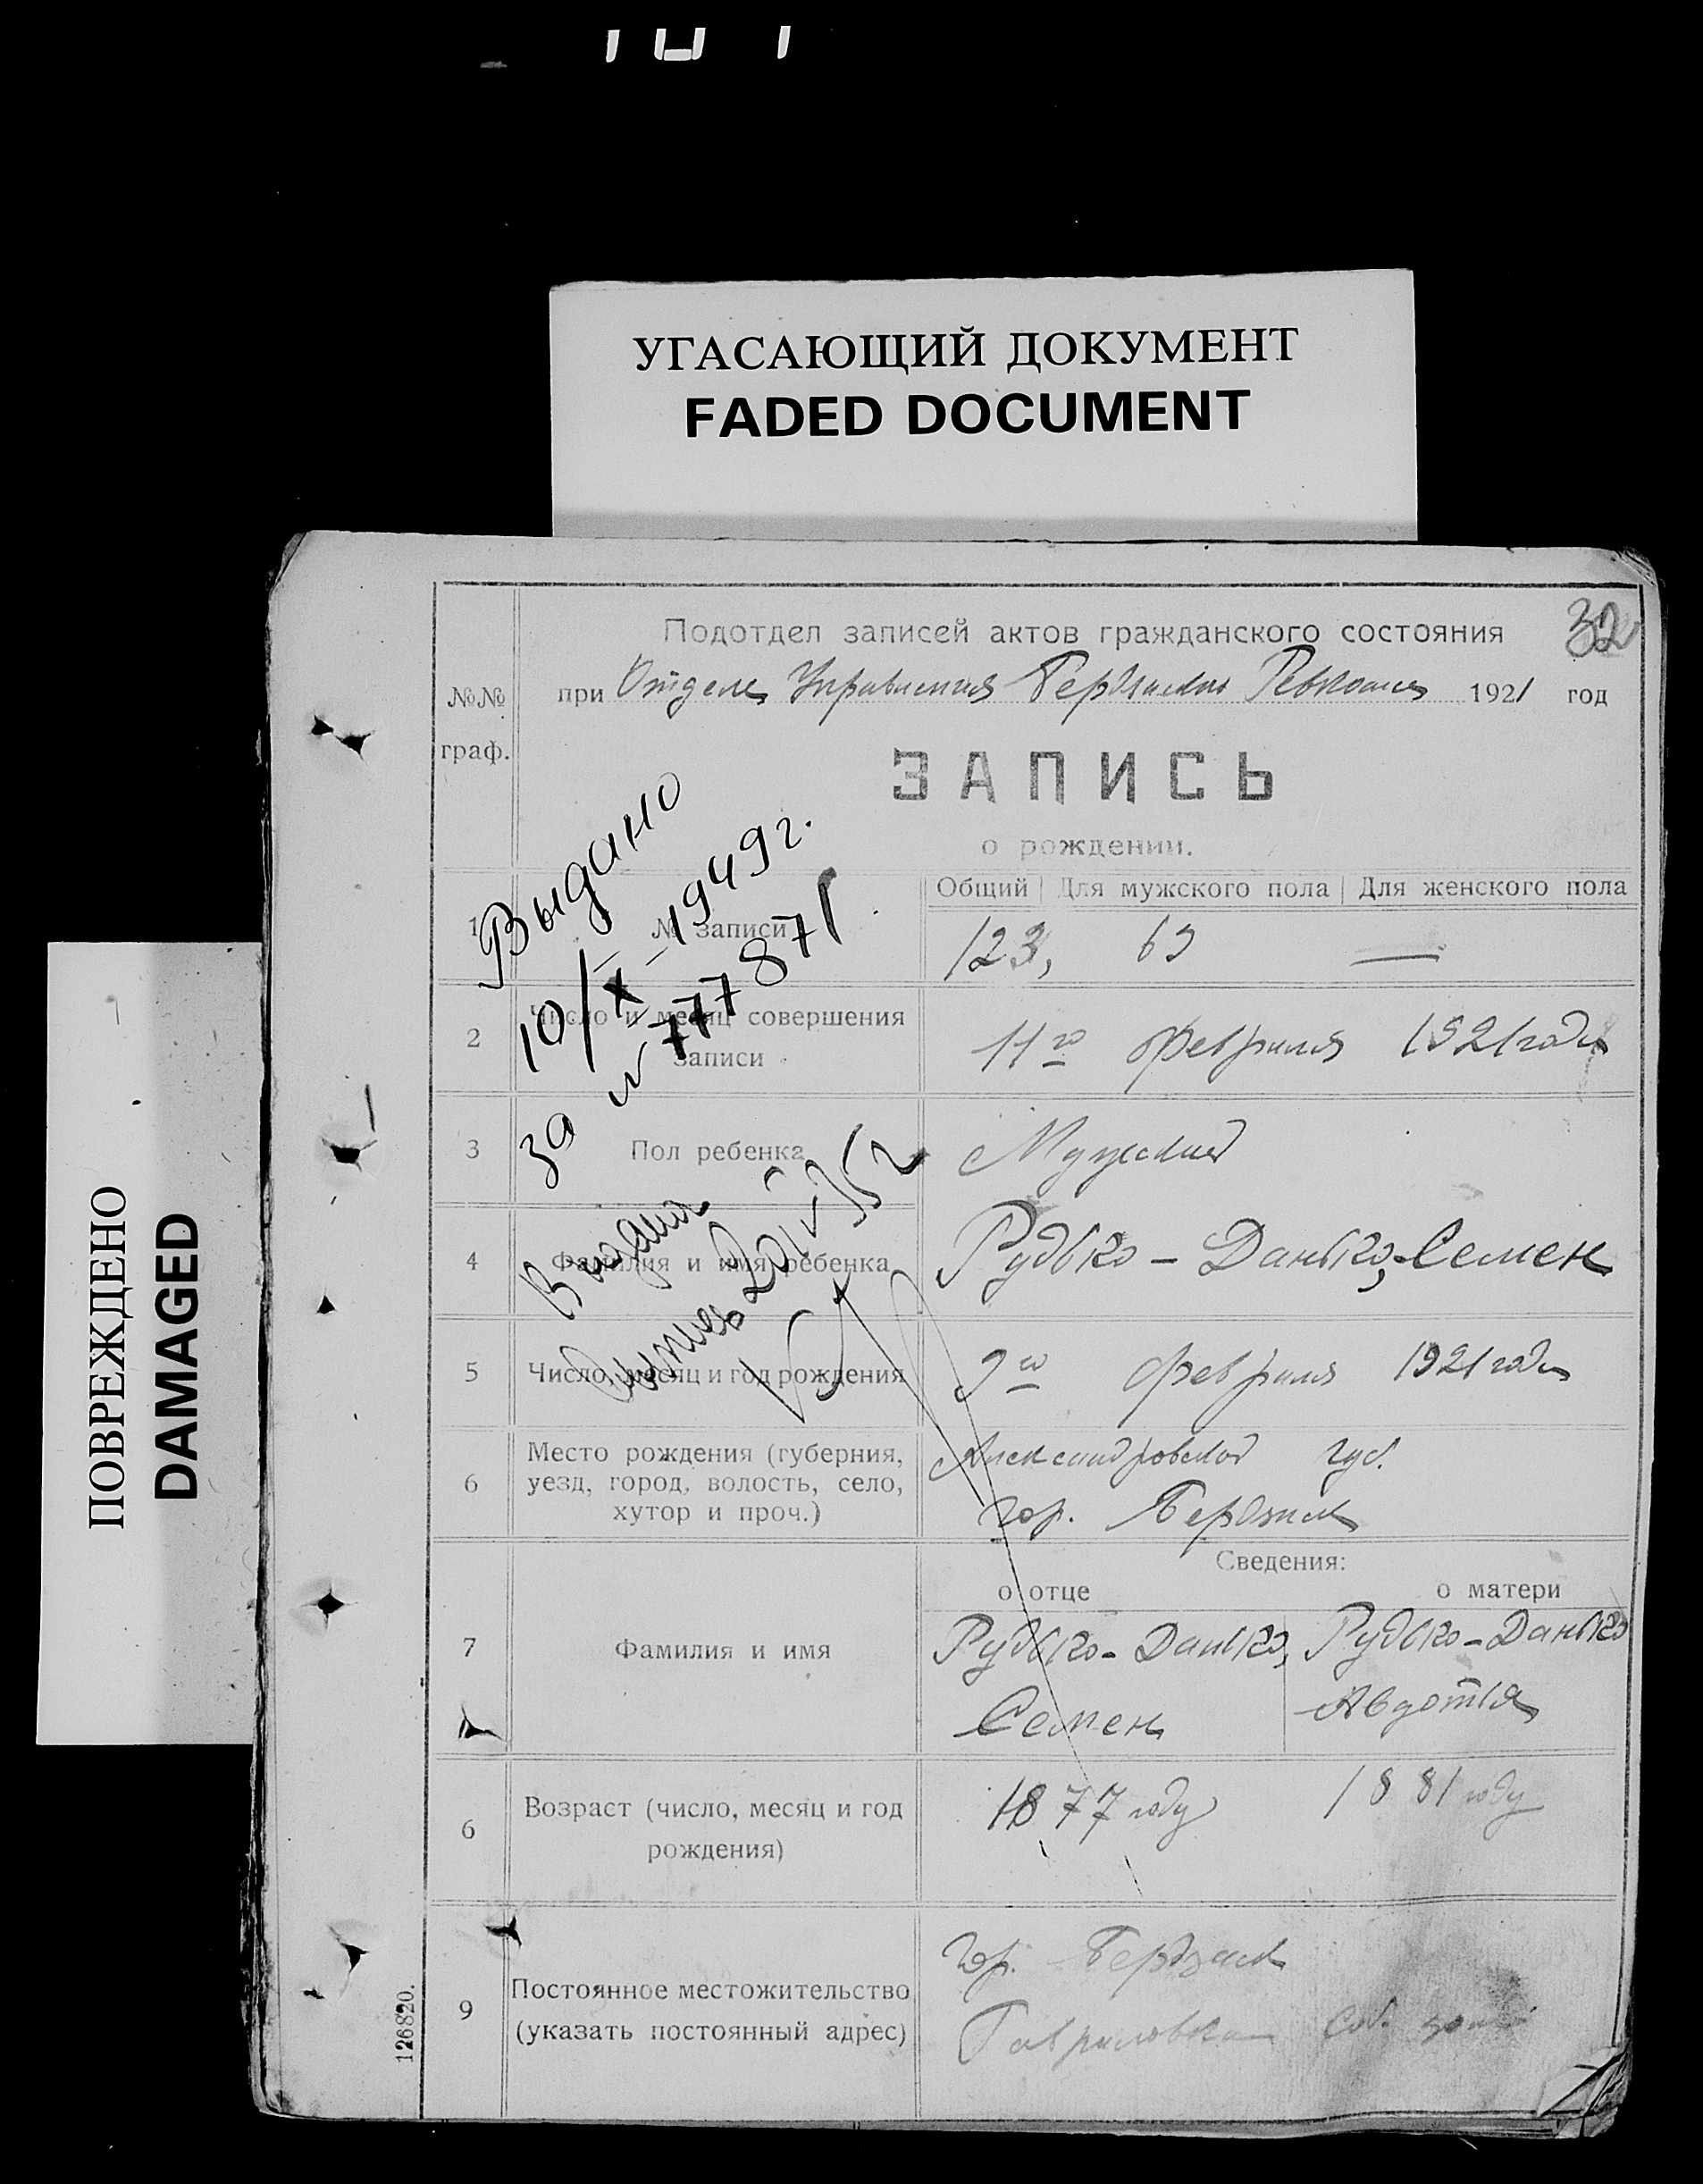 УГАСАЮЩИЙ ДОКУМЕНТ
FADED DOCUMENT
ПОВРЕЖДЕНО
DAMAGED
32
Подотдел записей актов гражданского состояния
№№ граф.
при Отделе Управления Бердянского Ревкома 1921 год
ЗАПИСЬ
о рождении.
Общий | Для мужского пола | Для женского пола
1 № записи 123, 69 —
2 Число и месяц совершения записи
11го февраля 1921 года
3 Пол ребенка Мужской
4 Фамилия и имя ребенка Рудько-Данько, Семен
5 Число, месяц и год рождения 9го февраля 1921 года
6 Место рождения (губерния,
уезд, город, волость, село,
хутор и проч.)
Александровской губ.
гор. Бердянск
Сведения:
о отце о матери
7 Фамилия и имя
Рудько-Данько, Рудько-Данько
Семен Авдотья
6 Возраст (число, месяц и год
рождения)
1877 году 1881 году
9 Постоянное местожительство
(указать постоянный адрес)
гор. Бердянск
Гавриловская соб. дом
126820.
Выдано
10/X-1949г.
за № 777871
Выдана